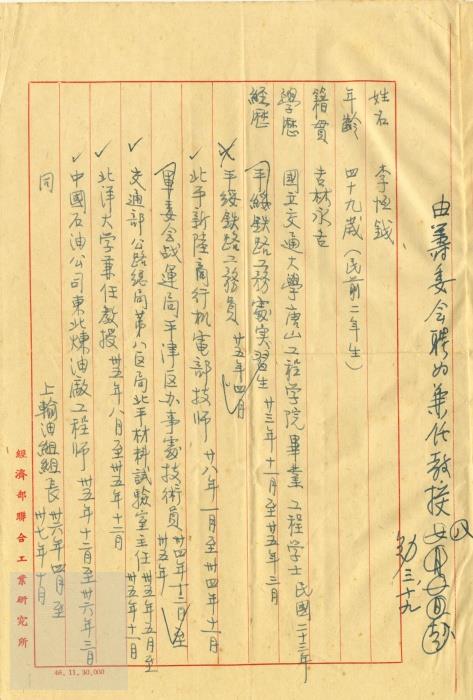 由籌委会聘为兼任教授
八
三十九
姓名 李恒鉞
年齡 四十九歲(民前二年生)
籍貫 吉林永吉
學歷 國立交通大學唐山工程學院畢業 工程學士 民國二十三年
經歷 平綏鉄路工務處实習生 廿三年十一月至廿五年三月
平綏鉄路工務員 廿五年四月
北平新陸商行机電部技师 廿八年一月至卅四年十一月
軍委会战運局平津区办事處技術員 卅四年十二月至卅五年
交通部公路總局第八区局北平材料試驗室主任 卅五年五月至卅五年十月
北洋大学兼任教授 卅五年八月至卅五年十二月
中國石油公司東北煉油廠工程师 卅五年十二月至卅六年三月
同 上輸油組組長 卅六年四月至卅七年十月
經濟部聯合工業研究所
46, 11, 30,000